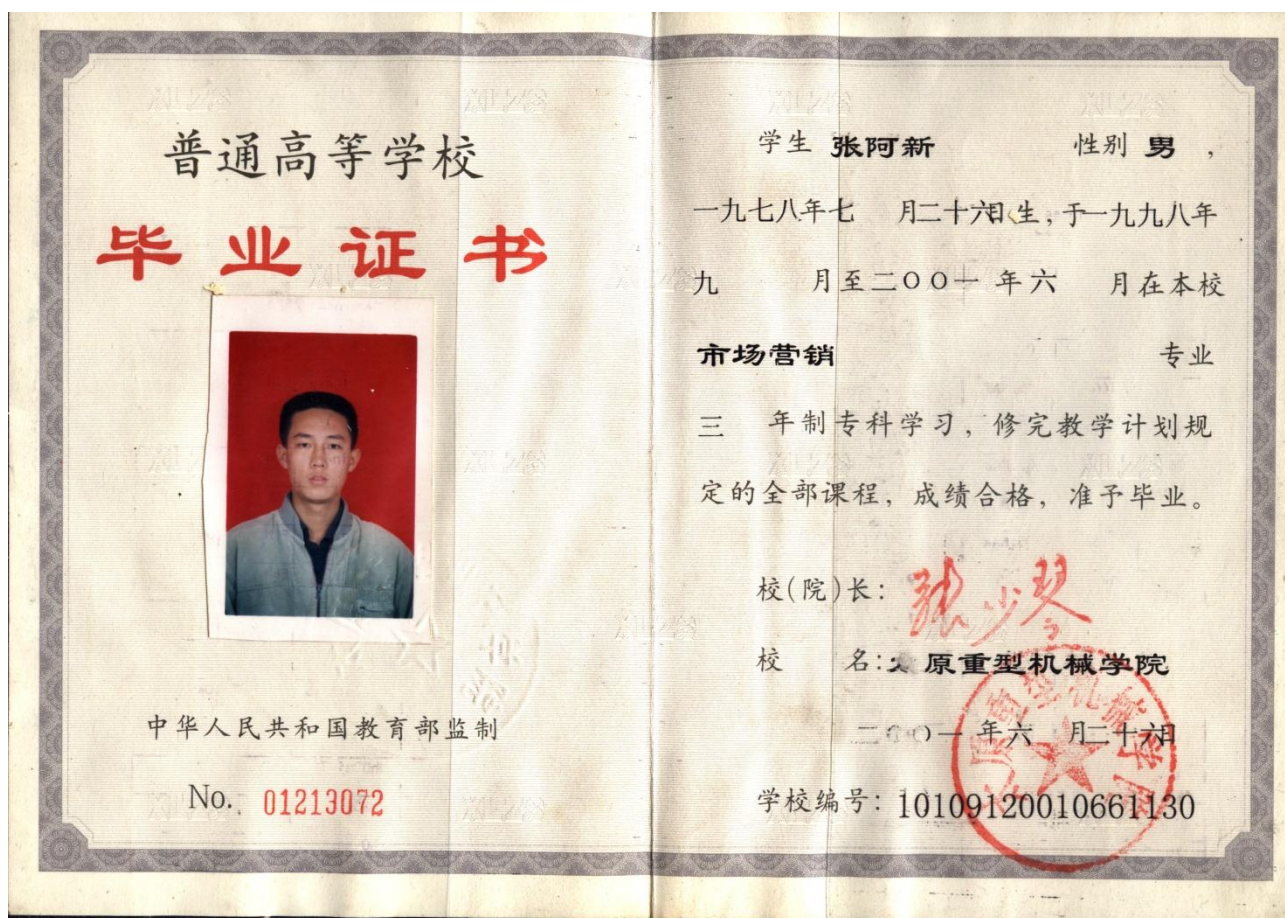 普通高等学校
毕业证书
中华人民共和国教育部监制
No. 01213072
学生 张阿新 性别 男，
一九七八年七 月二十六日生，于一九九八年
九 月至二〇〇一 年六 月在本校
市场营销 专业
三 年制专科学习，修完教学计划规
定的全部课程，成绩合格，准予毕业。
校(院)长：张少琴
校 名：太原重型机械学院
二〇〇一年六 月二十六日
学校编号：10109120010661130
太原重型机械学院